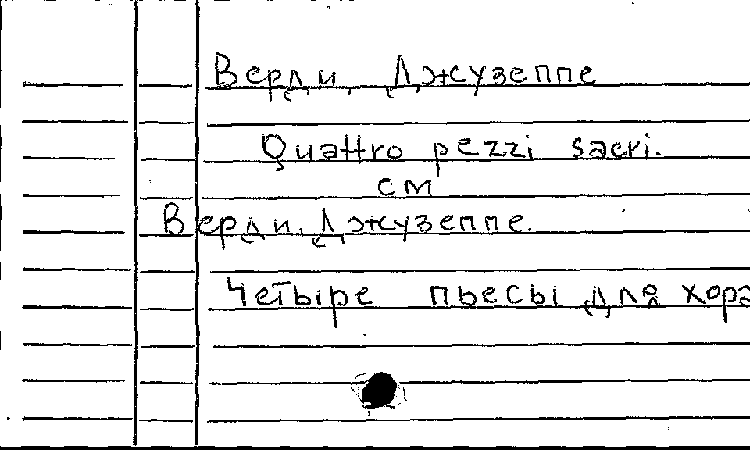 Верди, Джузеппе
Quattro pezzi sacri.
см
Верди, Джузеппе.
Четыре пьесы для хора